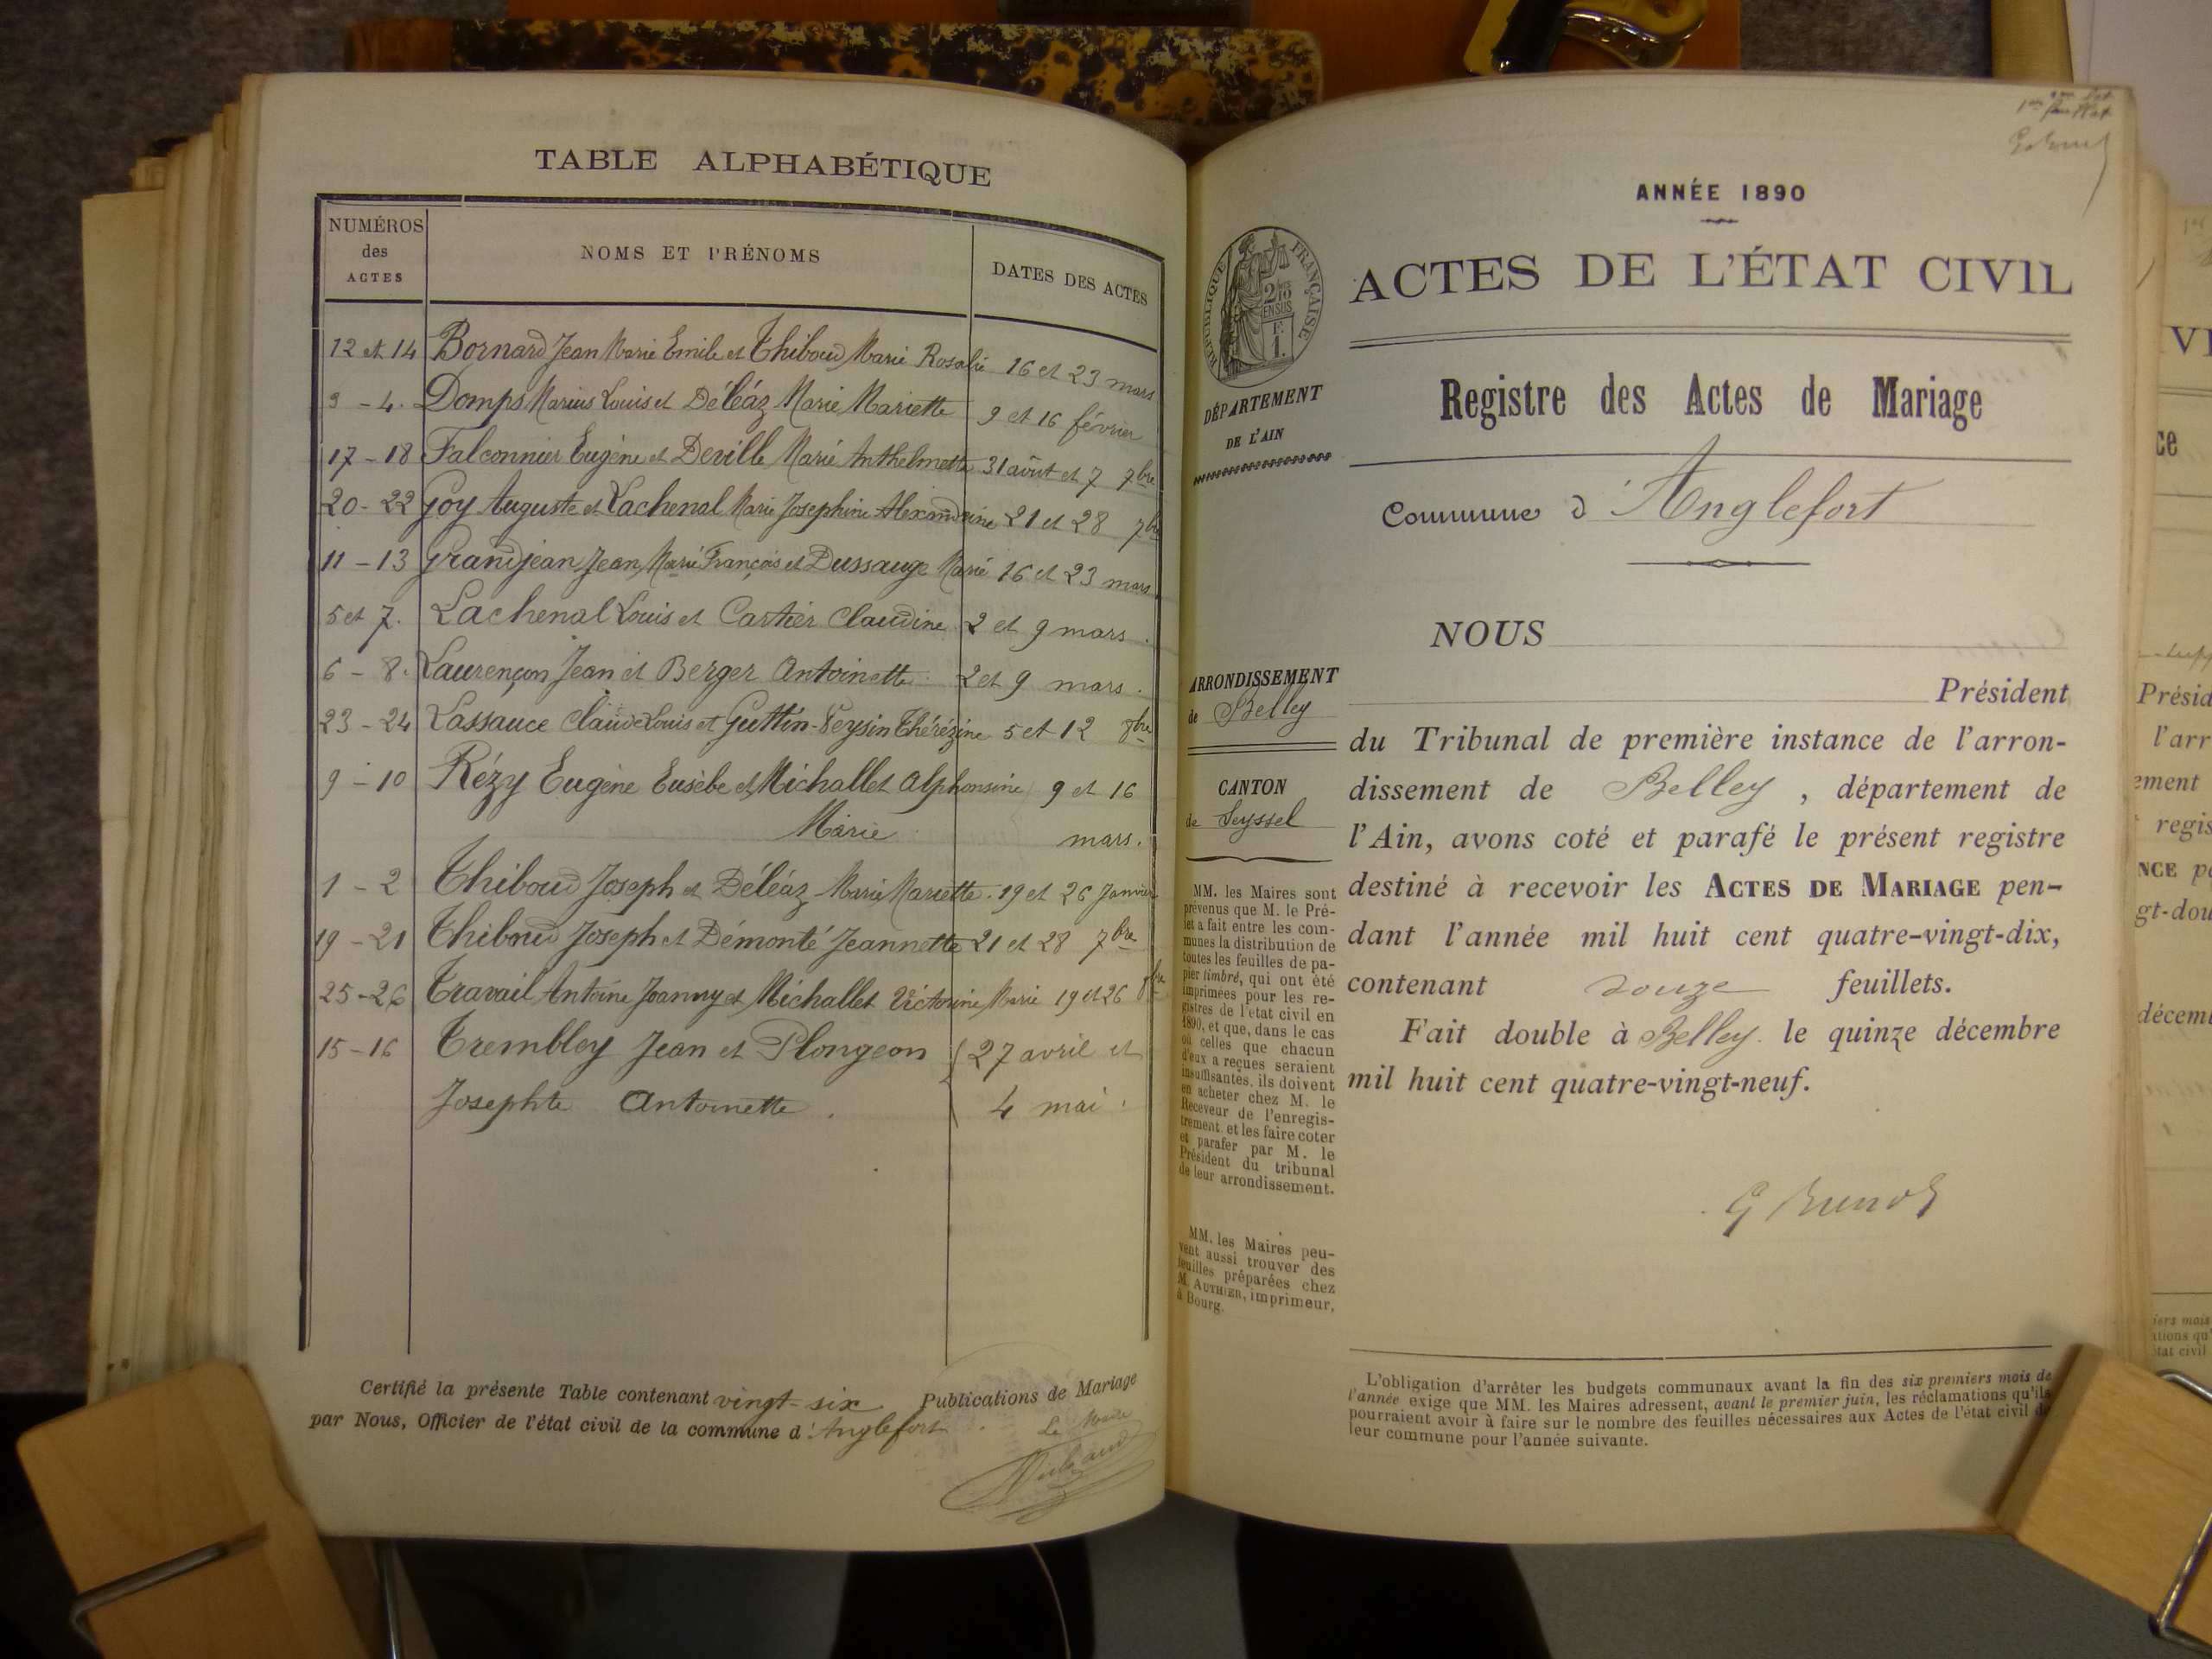 TABLE ALPHABÉTIQUE
NUMÉROS
des
ACTES
NOMS ET PRÉNOMS
DATES DES ACTES
12 et 14 Bornard Jean Marie Emile et Thiboud Marie Rosalie 16 et 23 mars
3 - 4. Domps Marius Louis et Déléaz Marie Mariette 9 et 16 février
17 - 18 Falconnier Eugène et Deville Marie Anthelmette 31 août et 7 7bre
20 - 22 Goy Auguste et Lachenal Marie Josephine Alexandrine 21 et 28 7bre
11 - 13 Grandjean Jean Marie François et Dussauge Marie 16 et 23 mars
5 et 7. Lachenal Louis et Cartier Claudine 2 et 9 mars.
6 - 8. Laurençon Jean et Berger Antoinette. 2 et 9 mars.
23 - 24 Lassauce Claude Louis et Guttin-Veysin Thérézine 5 et 12 8bre
9 - 10 Rézy Eugène Eusèbe et Michallet Alphonsine 9 et 16
Marie mars.
1 - 2 Thiboud Joseph et Déléaz Marie Mariette. 19 et 26 Janvier
19 - 21 Thiboud Joseph et Démonté Jeannette 21 et 28 7bre
25 - 26 Travail Antoine Joanny et Michallet Victorine Marie 19 et 26 8bre
15 - 16 Trembley Jean et Plongeon 27 avril et
Josephte Antoinette. 4 mai.
Certifié la présente Table contenant vingt-six Publications de Mariage
par Nous, Officier de l'état civil de la commune d'Anglefort.
Le Maire
ANNÉE 1890
ACTES DE L'ÉTAT CIVIL
RÉPUBLIQUE FRANÇAISE
DÉPARTEMENT
DE L'AIN
Registre des Actes de Mariage
Commune d'Anglefort
ARRONDISSEMENT
de Belley
CANTON
de Seyssel
MM. les Maires sont
prévenus que M. le Pré-
fet a fait entre les com-
munes la distribution de
toutes les feuilles de pa-
pier timbré, qui ont été
imprimées pour les re-
gistres de l'état civil en
1890, et que, dans le cas
où celles que chacun
d'eux a reçues seraient
insuffisantes, ils doivent
en acheter chez M. le
Receveur de l'enregis-
trement, et les faire coter
et parafer par M. le
Président du tribunal
de leur arrondissement.
MM. les Maires peu-
vent aussi trouver des
feuilles préparées chez
M. AUTHIER, imprimeur,
à Bourg.
NOUS
Président
du Tribunal de première instance de l'arron-
dissement de Belley, département de
l'Ain, avons coté et parafé le présent registre
destiné à recevoir les ACTES DE MARIAGE pen-
dant l'année mil huit cent quatre-vingt-dix,
contenant douze feuillets.
Fait double à Belley le quinze décembre
mil huit cent quatre-vingt-neuf.
L'obligation d'arrêter les budgets communaux avant la fin des six premiers mois de
l'année exige que MM. les Maires adressent, avant le premier juin, les réclamations qu'ils
pourraient avoir à faire sur le nombre des feuilles nécessaires aux Actes de l'état civil de
leur commune pour l'année suivante.